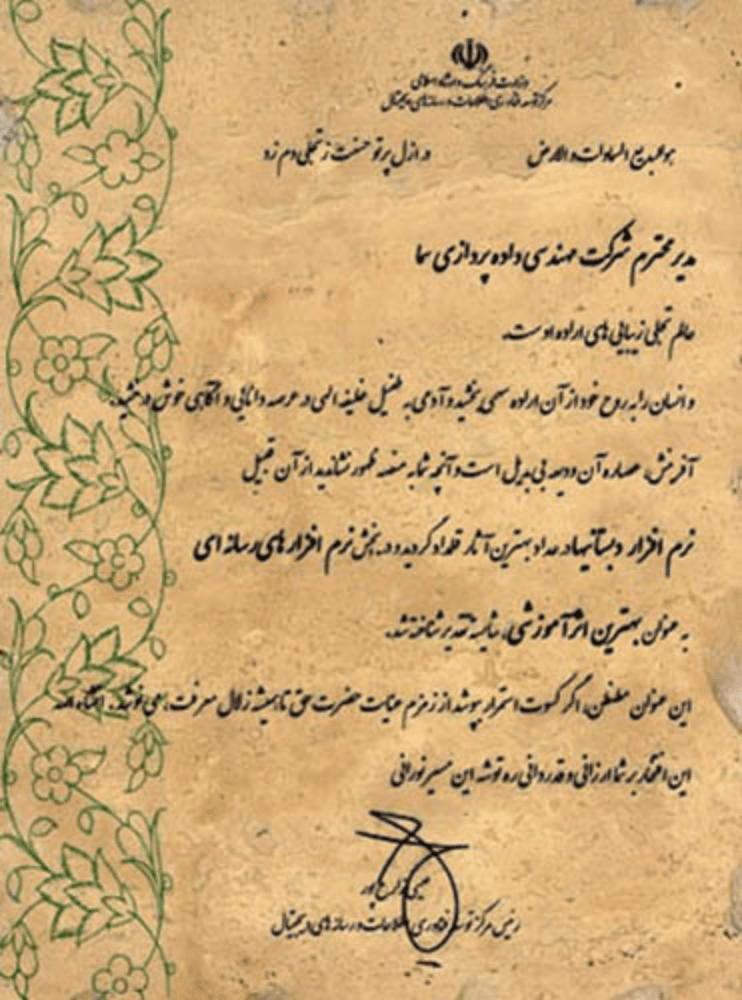 وزارت فرهنگ و ارشاد اسلامی
مرکز توسعه فناوری اطلاعات و رسانه‌های دیجیتال
هو البدیع السماوات و الارض
در ازل پرتو حسنت ز تجلی دم زد
مدیر محترم شرکت مهندسی داده پردازی سما
عالم تجلی زیبایی های اراده اوست.
و انسان را به روح خود از آن اراده سهمی بخشید و آدمی به طفیل خلیفه الهی در عرصه دانایی و آگاهی خوش درخشید.
آفرینش، عصاره آن ودیعه بی بدیل است و آنچه شما به منصه ظهور نشاندید از آن قبیل
نرم افزار دبستانیها در عداد بهترین آثار قلمداد گردید و در بخش نرم افزارهای رسانه ای
به عنوان بهترین اثر آموزشی، شایسته تقدیر شناخته شد.
این عنوان مطنطن، اگر کسوت استمرار بپوشد از زمزم عنایت حضرت حق تا همیشه زلال معرفت، می نوشد. انشاء الله
این افتخار بر شما ارزانی و قدردانی ره توشه این مسیر نورانی
رئیس مرکز توسعه فناوری اطلاعات و رسانه های دیجیتال